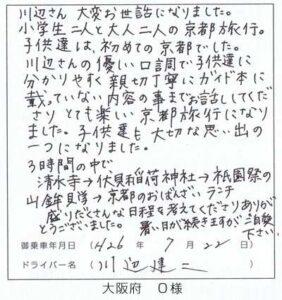 川辺さん 大変お世話になりました。
小学生二人と大人二人の京都旅行。
子供達は、初めての京都でした。
川辺さんの優しい口調で子供達に
分かりやすく親切丁寧にガイド本に
載っていない内容の事までお話ししてくだ
さりとても楽しい京都旅行になり
ました。子供達も大切な思い出の
一つになりました。
3時間の中で
清水寺→伏見稲荷神社→祇園祭の
山鉾見学→京都のおばんざいランチ
盛りだくさんな日程を考えてくださりありが
とうございました。暑い日が続きますがご自愛
下さい。
御乗車年月日 (H26年 7月 22日)
ドライバー名 (川辺建二)
大阪府 O様